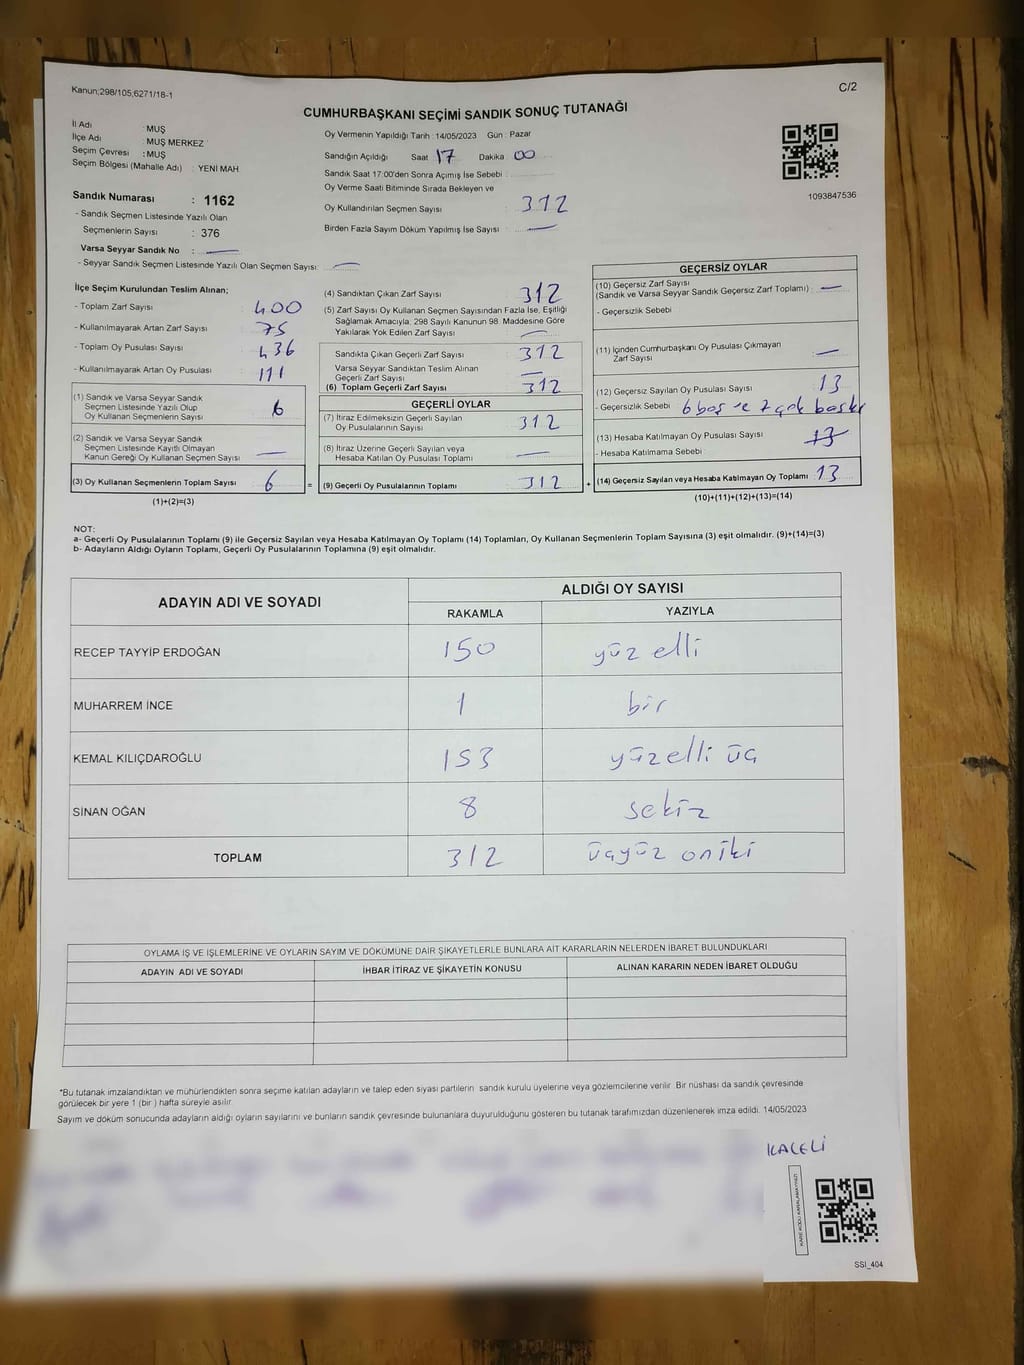 Kanun;298/105,6271/18-1
C/2
CUMHURBAŞKANI SEÇİMİ SANDIK SONUÇ TUTANAĞI
İl Adı : MUŞ
İlçe Adı : MUŞ MERKEZ
Seçim Çevresi : MUŞ
Seçim Bölgesi (Mahalle Adı) : YENİ MAH
Sandık Numarası : 1162
- Sandık Seçmen Listesinde Yazılı Olan
Seçmenlerin Sayısı : 376
Varsa Seyyar Sandık No :
- Seyyar Sandık Seçmen Listesinde Yazılı Olan Seçmen Sayısı:
Oy Vermenin Yapıldığı Tarih : 14/05/2023 Gün : Pazar
Sandığın Açıldığı Saat 17 Dakika 00
Sandık Saat 17:00'den Sonra Açımış İse Sebebi :
Oy Verme Saati Bitiminde Sırada Bekleyen ve
Oy Kullandırılan Seçmen Sayısı : 312
Birden Fazla Sayım Döküm Yapılmış İse Sayısı :
1093847536
İlçe Seçim Kurulundan Teslim Alınan;
- Toplam Zarf Sayısı : 400
- Kullanılmayarak Artan Zarf Sayısı : 75
- Toplam Oy Pusulası Sayısı : 436
- Kullanılmayarak Artan Oy Pusulası : 111
(1) Sandık ve Varsa Seyyar Sandık
Seçmen Listesinde Yazılı Olup
Oy Kullanan Seçmenlerin Sayısı : 6
(2) Sandık ve Varsa Seyyar Sandık
Seçmen Listesinde Kayıtlı Olmayan
Kanun Gereği Oy Kullanan Seçmen Sayısı :
(3) Oy Kullanan Seçmenlerin Toplam Sayısı : 6
(1)+(2)=(3)
(4) Sandıktan Çıkan Zarf Sayısı : 312
(5) Zarf Sayısı Oy Kullanan Seçmen Sayısından Fazla İse, Eşitliği
Sağlamak Amacıyla, 298 Sayılı Kanunun 98. Maddesine Göre
Yakılarak Yok Edilen Zarf Sayısı :
Sandıkta Çıkan Geçerli Zarf Sayısı : 312
Varsa Seyyar Sandıktan Teslim Alınan
Geçerli Zarf Sayısı :
(6) Toplam Geçerli Zarf Sayısı : 312
GEÇERLİ OYLAR
(7) İtiraz Edilmeksizin Geçerli Sayılan
Oy Pusulalarının Sayısı : 312
(8) İtiraz Üzerine Geçerli Sayılan veya
Hesaba Katılan Oy Pusulası Toplamı :
= (9) Geçerli Oy Pusulalarının Toplamı : 312 +
GEÇERSİZ OYLAR
(10) Geçersiz Zarf Sayısı
(Sandık ve Varsa Seyyar Sandık Geçersiz Zarf Toplamı) :
- Geçersizlik Sebebi :
(11) İçinden Cumhurbaşkanı Oy Pusulası Çıkmayan
Zarf Sayısı :
(12) Geçersiz Sayılan Oy Pusulası Sayısı : 13
- Geçersizlik Sebebi : 6 boş ve 7 çok baskı
(13) Hesaba Katılmayan Oy Pusulası Sayısı : 13
- Hesaba Katılmama Sebebi :
(14) Geçersiz Sayılan veya Hesaba Katılmayan Oy Toplamı : 13
(10)+(11)+(12)+(13)=(14)
NOT:
a- Geçerli Oy Pusulalarının Toplamı (9) ile Geçersiz Sayılan veya Hesaba Katılmayan Oy Toplamı (14) Toplamları, Oy Kullanan Seçmenlerin Toplam Sayısına (3) eşit olmalıdır. (9)+(14)=(3)
b- Adayların Aldığı Oyların Toplamı, Geçerli Oy Pusulalarının Toplamına (9) eşit olmalıdır.
ADAYIN ADI VE SOYADI
ALDIĞI OY SAYISI
RAKAMLA YAZIYLA
RECEP TAYYİP ERDOĞAN 150 yüz elli
MUHARREM İNCE 1 bir
KEMAL KILIÇDAROĞLU 153 yüzelli üç
SİNAN OĞAN 8 sekiz
TOPLAM 312 üçyüz oniki
OYLAMA İŞ VE İŞLEMLERİNE VE OYLARIN SAYIM VE DÖKÜMÜNE DAİR ŞİKAYETLERLE BUNLARA AİT KARARLARIN NELERDEN İBARET BULUNDUKLARI
ADAYIN ADI VE SOYADI İHBAR İTİRAZ VE ŞİKAYETİN KONUSU ALINAN KARARIN NEDEN İBARET OLDUĞU
*Bu tutanak imzalandıktan ve mühürlendikten sonra seçime katılan adayların ve talep eden siyasi partilerin sandık kurulu üyelerine veya gözlemcilerine verilir. Bir nüshası da sandık çevresinde
görülecek bir yere 1 (bir ) hafta süreyle asılır.
Sayım ve döküm sonucunda adayların aldığı oyların sayılarını ve bunların sandık çevresinde bulunanlara duyurulduğunu gösteren bu tutanak tarafımızdan düzenlenerek imza edildi. 14/05/2023
KARE KODU KARALAMAYINIZ!
SSI_404